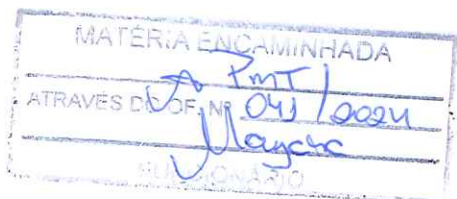 MATÉRIA ENCAMINHADA
A PMT
ATRAVÉS DO OF. Nº 041/2024
Mayara
FUNCIONÁRIO